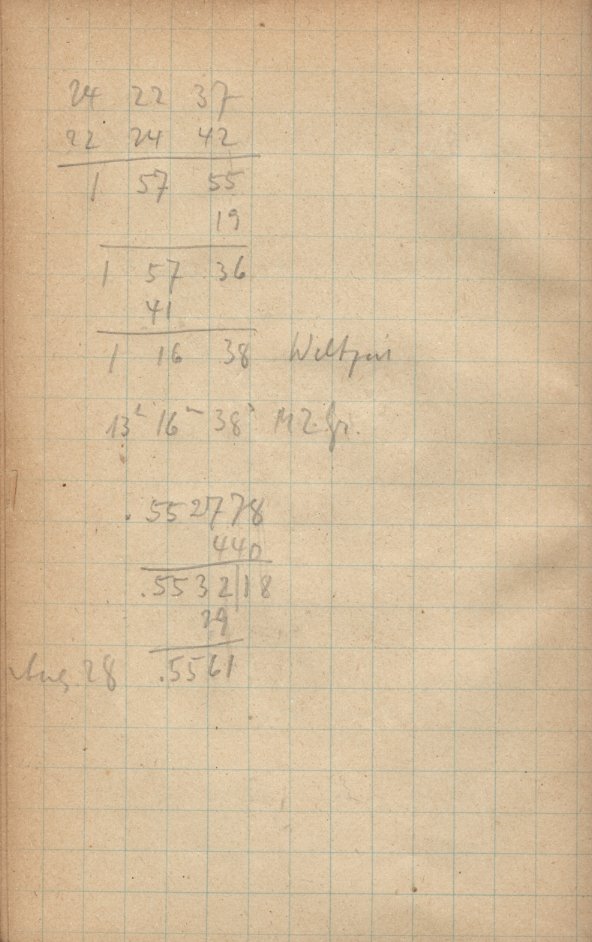 24 22 37
22 24 42
1 57 55
19
1 57 36
41
1 16 38 Weltzeit
13h 16m 38s M.Z. Gr.
.552778
440
.5532|18
29
Aug 28 .5561